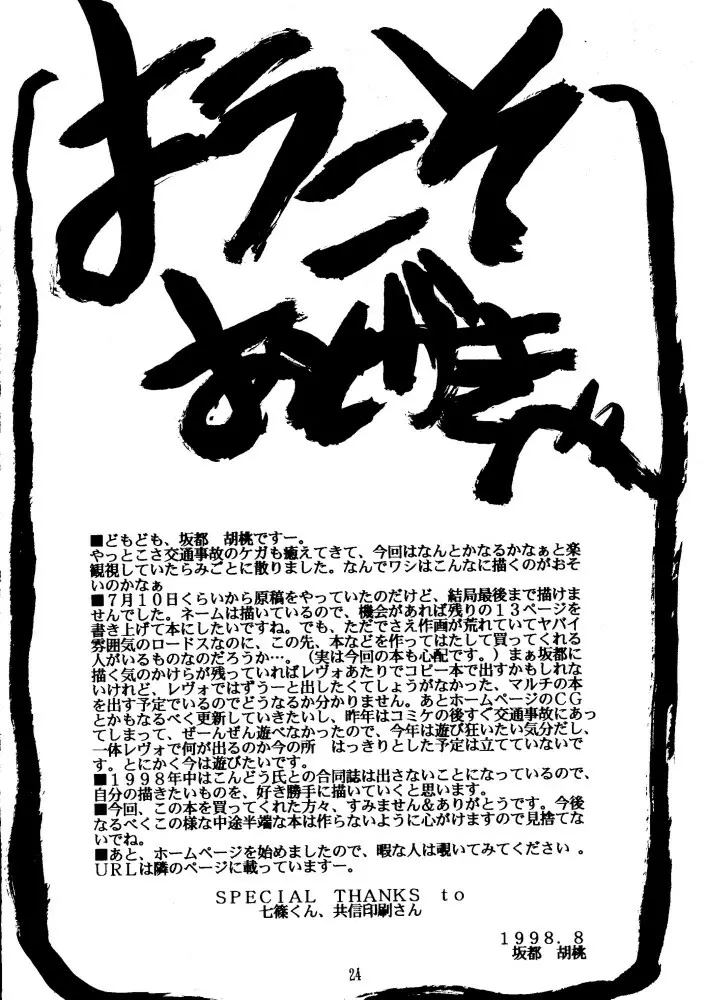 ようこそ
■どもども、坂都　胡桃ですー。
やっとこさ交通事故のケガも癒えてきて、今回はなんとかなるかなぁと楽
観視していたらみごとに散りました。なんでワシはこんなに描くのがおそ
いのかなぁ
■７月１０日くらいから原稿をやっていたのだけど、結局最後まで描けま
せんでした。ネームは描いているので、機会があれば残りの１３ページを
書き上げて本にしたいですね。でも、ただでさえ作画が荒れていてヤバイ
雰囲気のロードスなのに、この先、本などを作ってはたして買ってくれる
人がいるものなのだろうか…。（実は今回の本も心配です。）まぁ坂都に
描く気のかけらが残っていればレヴォあたりでコピー本で出すかもしれな
いけれど、レヴォではずうーと出したくてしょうがなかった、マルチの本
を出す予定でいるのでどうなるか分かりません。あとホームページのＣＧ
とかもなるべく更新していきたいし、昨年はコミケの後すぐ交通事故にあ
ってしまって、ぜーんぜん遊べなかったので、今年は遊び狂いたい気分だし、
一体レヴォで何が出るのか今の所　はっきりとした予定は立てていないで
す。とにかく今は遊びたいです。
■１９９８年中はこんどう氏との合同誌は出さないことになっているので、
自分の描きたいものを、好き勝手に描いていくと思います。
■今回、この本を買ってくれた方々、すみません＆ありがとうです。今後
なるべくこの様な中途半端な本は作らないように心がけますので見捨てな
いでね。
■あと、ホームページを始めましたので、暇な人は覗いてみてください 。
ＵＲＬは隣のページに載っていますー。
ＳＰＥＣＩＡＬ　ＴＨＡＮＫＳ　ｔｏ
七篠くん、共信印刷さん
１９９８．８
坂都　胡桃
24